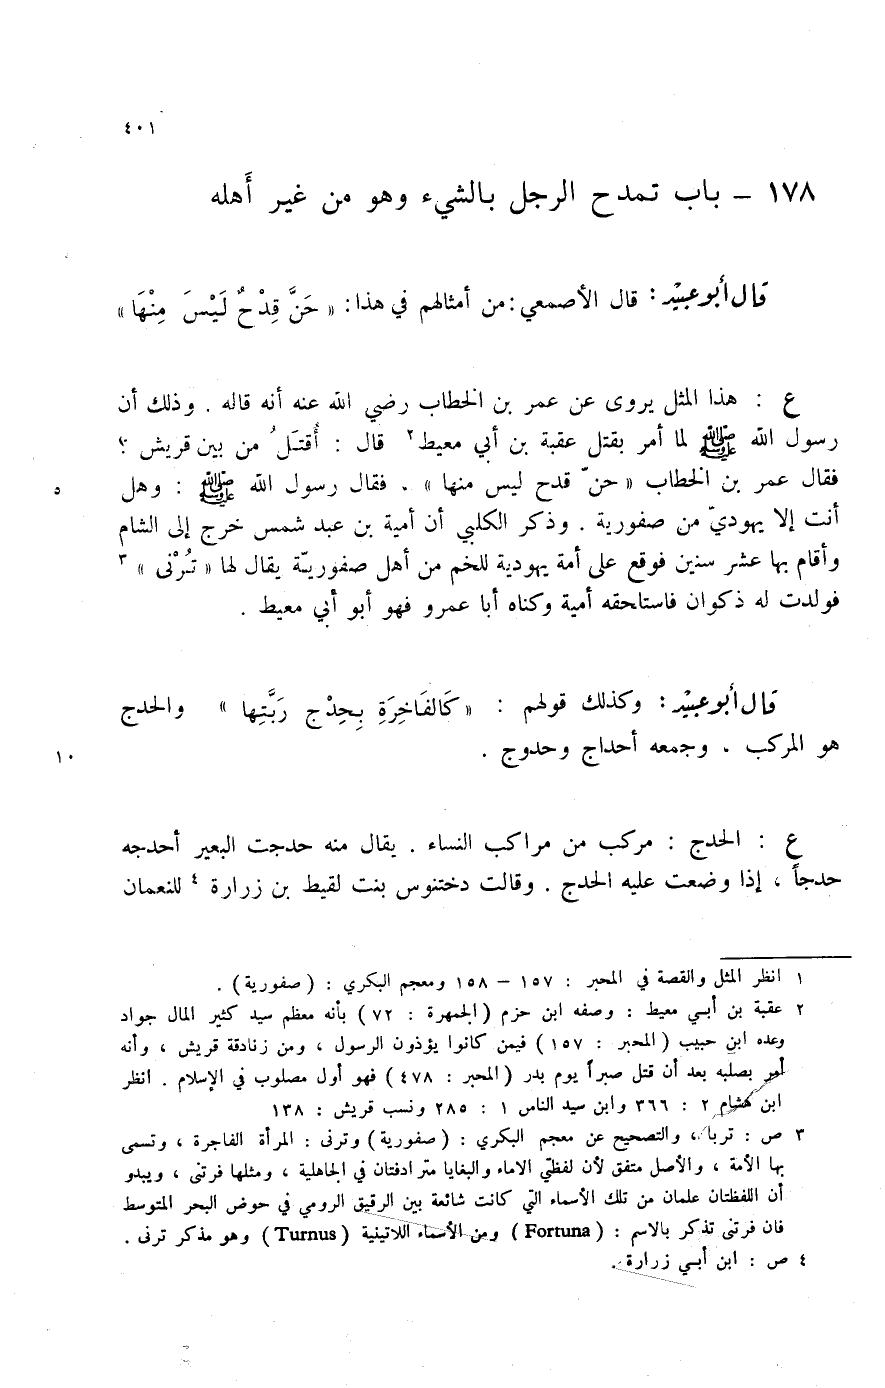 ٤٠١
١٧٨ – باب تمدح الرجل بالشيء وهو من غير أَهله
قال أبو عبيد : قال الأصمعي : من أمثالهم في هذا : « حَنَّ قِدْحٌ لَيْسَ مِنْهَا »
ع : هذا المثل يروى عن عمر بن الخطاب رضي الله عنه أنه قاله . وذلك أن
رسول الله ﷺ لما أمر بقتل عقبة بن أبي معيط٢ قال : أُقتَلُ من بين قريش ؟
فقال عمر بن الخطاب « حنّ قدح ليس منها » . فقال رسول الله ﷺ : وهل
٥
أنت إلا يهوديّ من صفورية . وذكر الكلبي أن أمية بن عبد شمس خرج إلى الشام
وأقام بها عشر سنين فوقع على أمة يهودية للخم من أهل صفوريّة يقال لها « تُرْنى » ٣
فولدت له ذكوان فاستلحقه أمية وكناه أبا عمرو فهو أبو أبي معيط .
قال أبو عبيد : وكذلك قولهم : « كَالفَاخِرَةِ بِحِدْجِ رَبَّتِها » والحدج
هو المركب . وجمعه أحداج وحدوج .
١٠
ع : الحدج : مركب من مراكب النساء . يقال منه حدجت البعير أحدجه
حدجاً ، إذا وضعت عليه الحدج . وقالت دختنوس بنت لقيط بن زرارة ٤ للنعمان
١ انظر المثل والقصة في المحبر : ١٥٧ – ١٥٨ ومعجم البكري : ( صفورية ) .
٢ عقبة بن أبي معيط : وصفه ابن حزم ( الجمهرة : ٧٢ ) بأنه معظم سيد كثير المال جواد
وعده ابن حبيب ( المحبر : ١٥٧ ) فيمن كانوا يؤذون الرسول ، ومن زنادقة قريش ، وأنه
أمر بصلبه بعد أن قتل صبراً يوم بدر ( المحبر : ٤٧٨ ) فهو أول مصلوب في الإسلام . انظر
ابن هشام ٢ : ٣٦٦ وابن سيد الناس ١ : ٢٨٥ ونسب قريش : ١٣٨
٣ ص : تربا ، والتصحيح عن معجم البكري : ( صفورية ) وترنى : المرأة الفاجرة ، وتسمى
بها الأمة ، والأصل متفق لأن لفظتي الاماء والبغايا مترادفتان في الجاهلية ، ومثلها فرتنى ، ويبدو
أن اللفظتان علمان من تلك الأسماء التي كانت شائعة بين الرقيق الرومي في حوض البحر المتوسط
فان فرتنى تذكر بالاسم : ( Fortuna ) ومن الأسماء اللاتينية ( Turnus ) وهو مذكر ترنى .
٤ ص : ابن أبي زرارة .